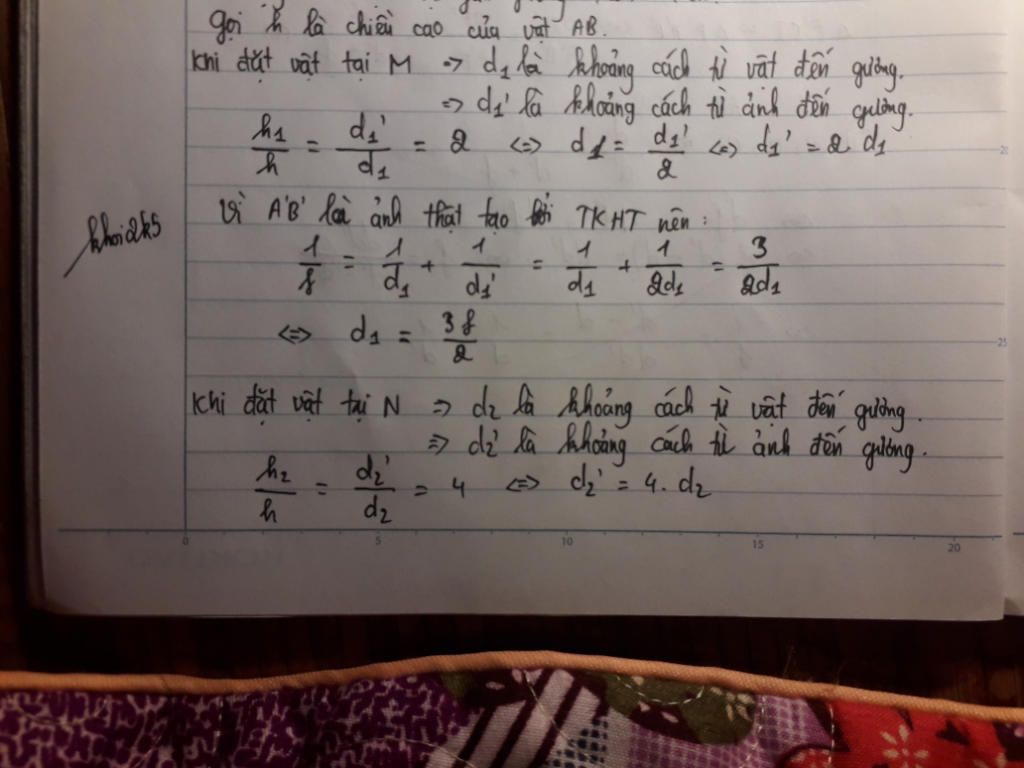 Gọi h là chiều cao của vật AB.
Khi đặt vật tại M => d1 là khoảng cách từ vật đến gương.
=> d1' là khoảng cách từ ảnh đến gương.
h1/h = d1'/d1 = 2 <=> d1 = d1'/2 <=> d1' = 2 d1
Vì A'B' là ảnh thật tạo bởi TKHT nên:
khoi2k5
1/f = 1/d1 + 1/d1' = 1/d1 + 1/2d1 = 3/2d1
<=> d1 = 3f/2
Khi đặt vật tại N => d2 là khoảng cách từ vật đến gương.
=> d2' là khoảng cách từ ảnh đến gương.
h2/h = d2'/d2 = 4 <=> d2' = 4. d2
0 5 10 15 20
25